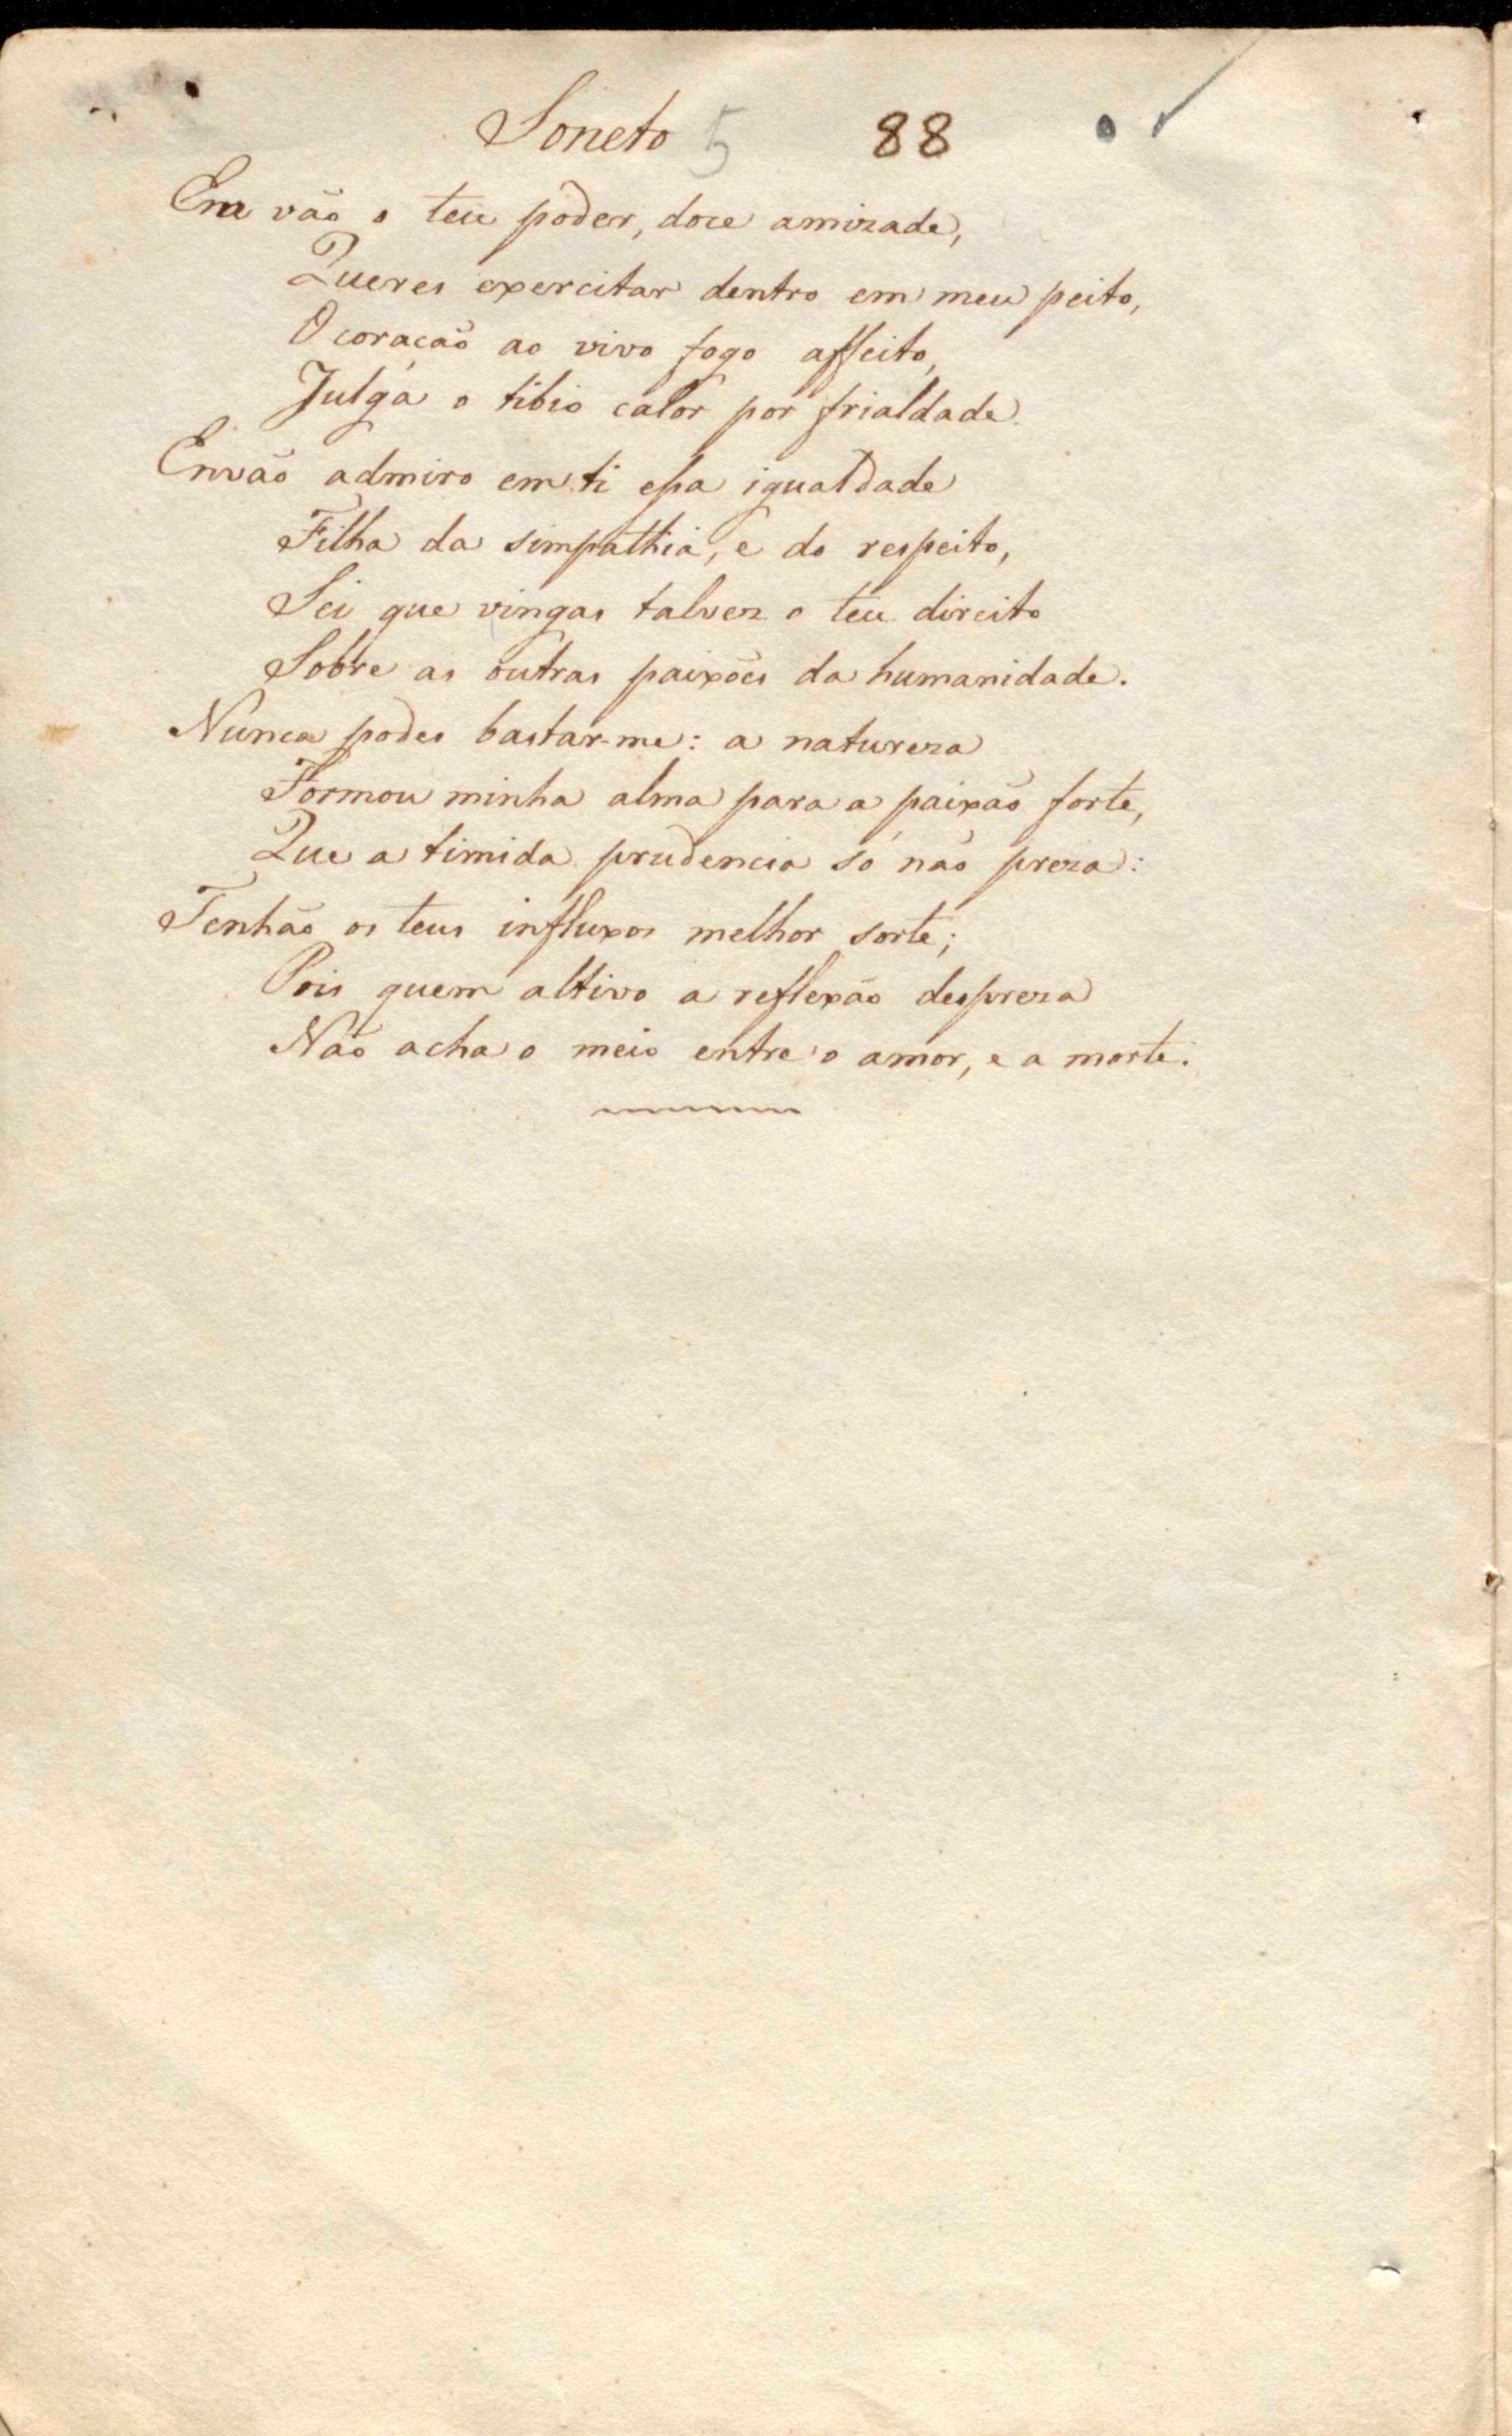 Soneto 5 88
Em vão o teu poder, doce amizade,
Queres exercitar dentro em meu peito,
O coração ao vivo fogo affeito,
Julga o tibio calor por frialdade.
Envão admiro em ti essa igualdade
Filha da simpathia, e do respeito,
Sei que vingas talvez o teu direito
Sobre as outras paixões da humanidade.
Nunca podes bastar-me: a natureza
Formou minha alma para a paixão forte,
Que a timida prudencia só não preza:
Tenhão os teus influxos melhor sorte;
Pois quem altivo a reflexão despreza
Não acha o meio entre o amor, e a morte.